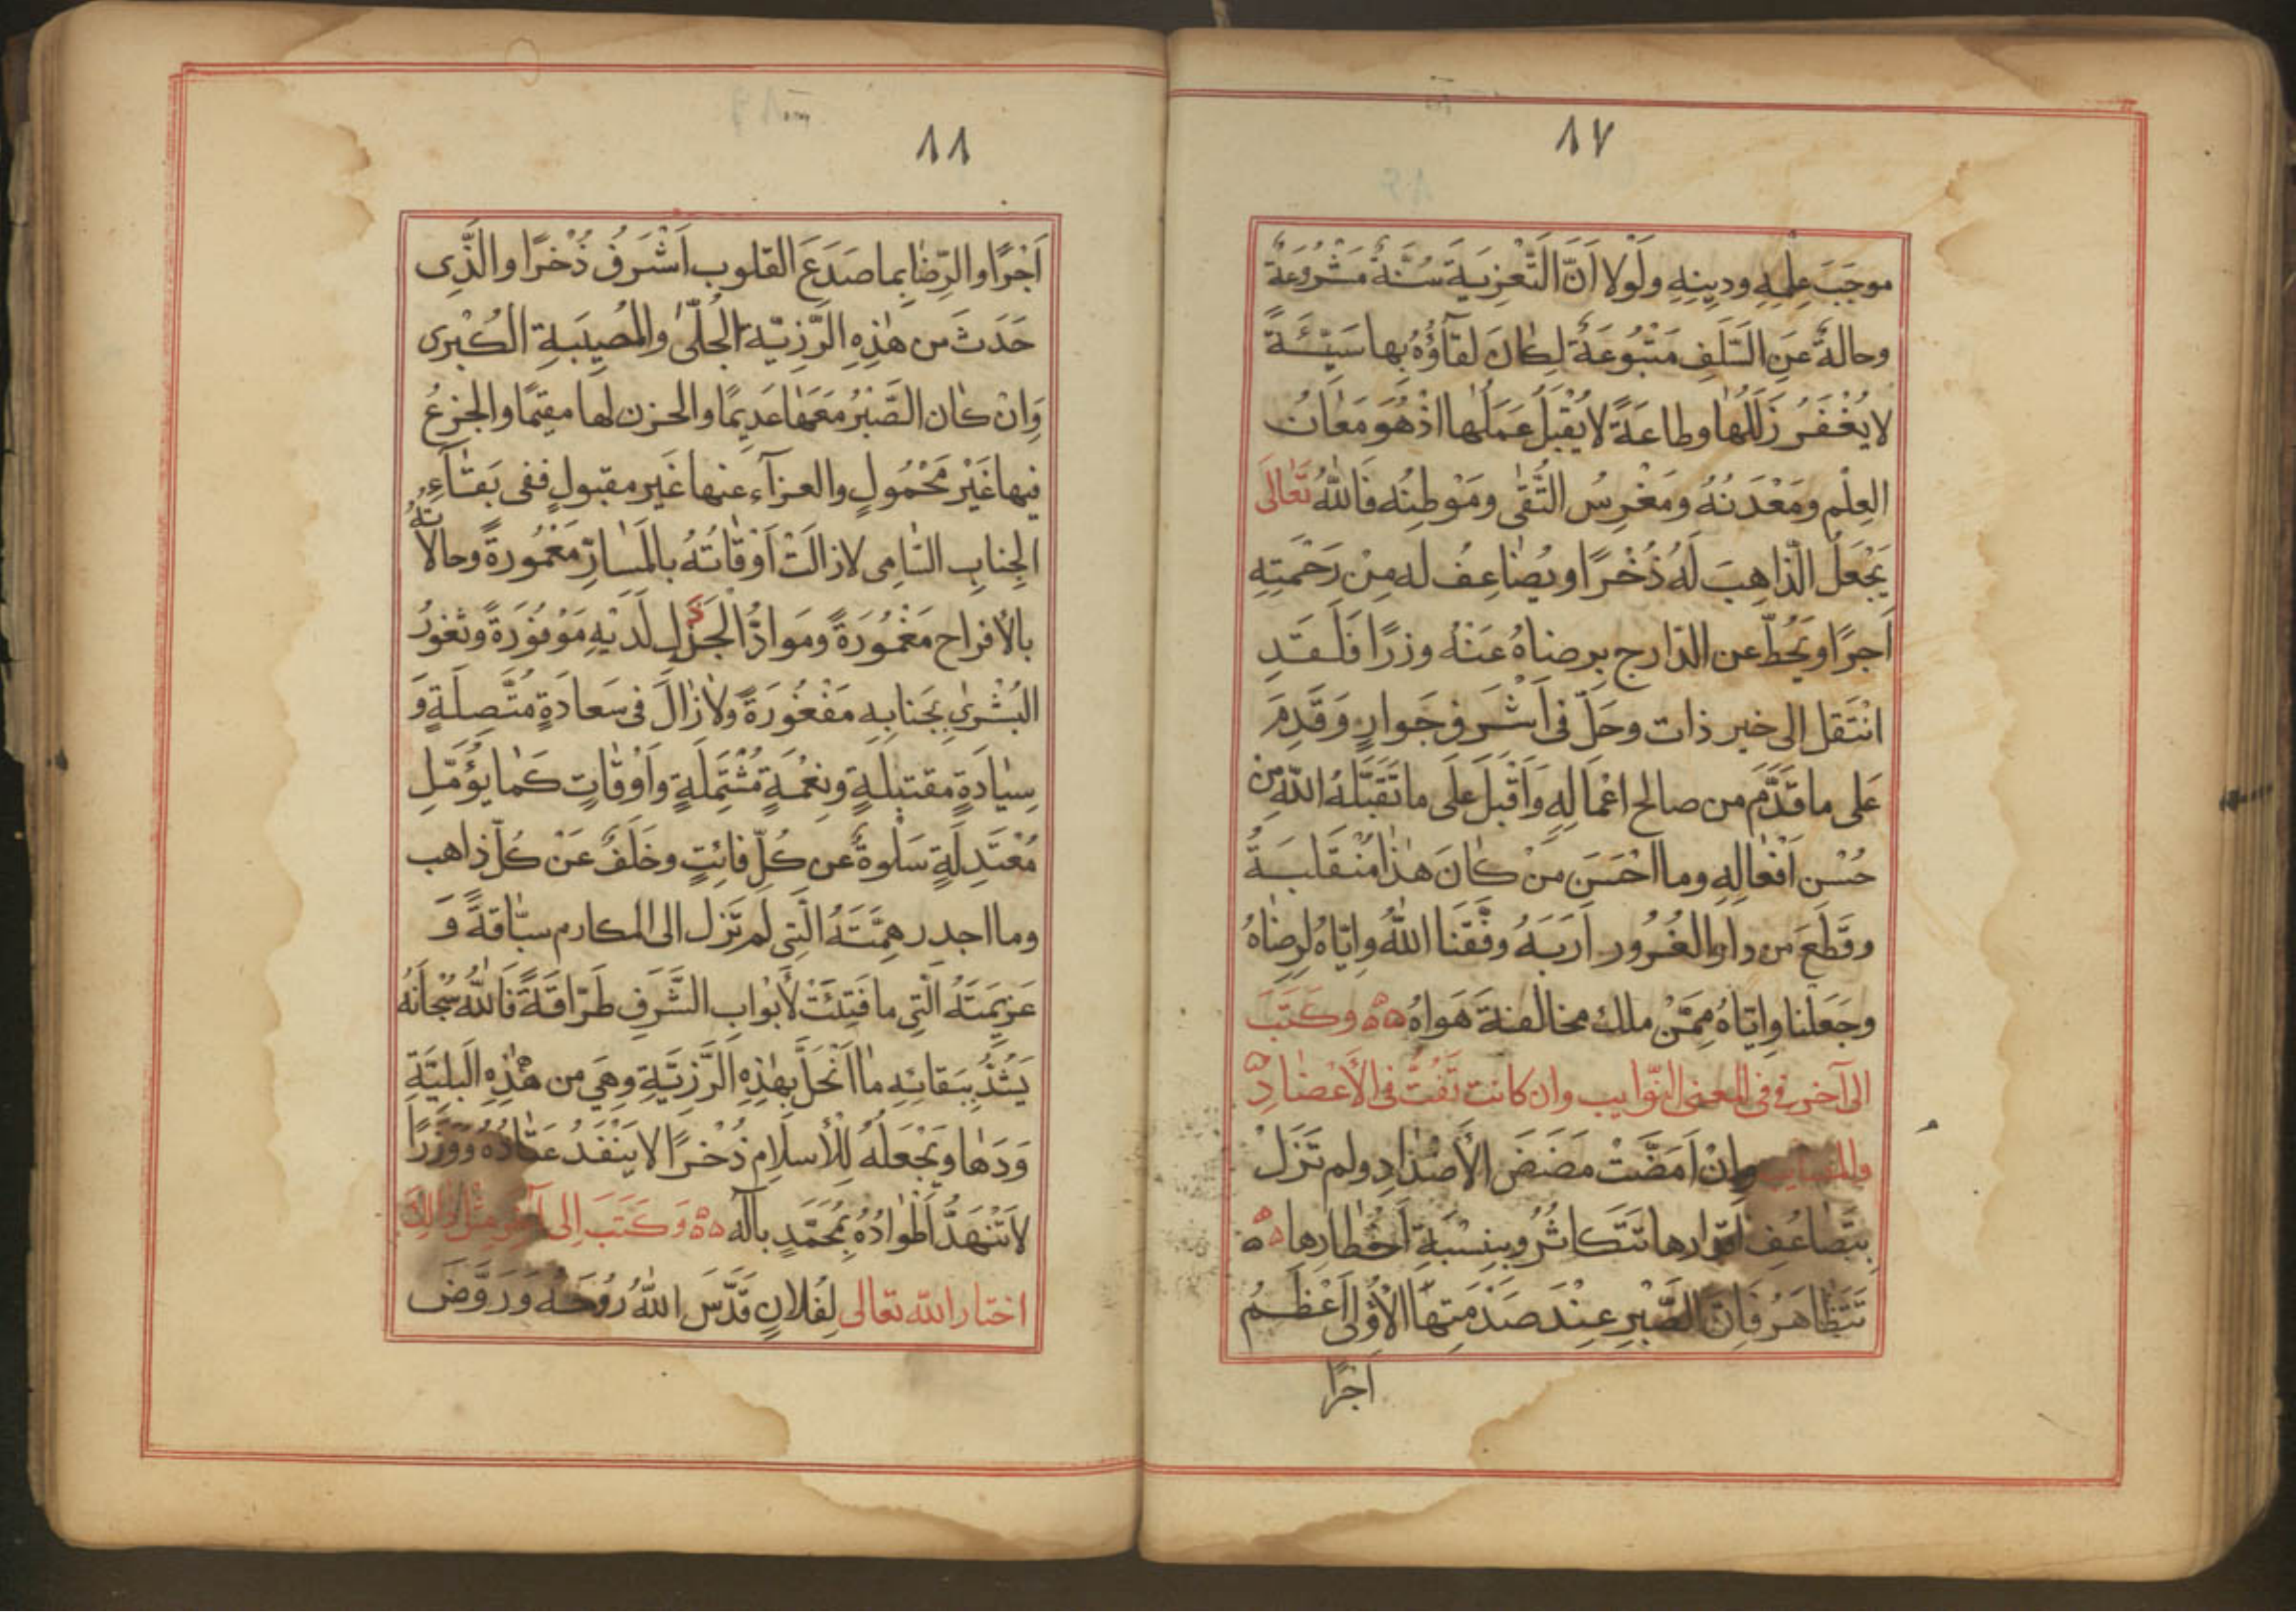 ٨٧
موجَبَ عِلمِهِ ودينِهِ ولَولا اَنَّ التَّعْزِيَةَ سُنَّةٌ مَشْرُوعَةٌ
وحالةٌ عَنِ السَّلَفِ مَتْبُوعَةٌ لكانَ لقآؤُهُ بِها سَيِّئَةً
لا يُغْفَرُ زَلَلُها وطاعَةً لا يُقْبَلُ عَمَلُها اذْ هُوَ مَعانُ
العِلْمِ ومَعْدَنُهُ ومَغْرِسُ التُّقى ومَوْطِنُه فَاللهُ تَعَالَى
يَجْعَلُ الذّاهِبَ لَهُ ذُخْرًا ويُضاعِفُ له مِنْ رَحْمَتِهِ
اَجرًا ويَحُطّ عن الدّارج بِرضاهُ عَنْهُ وِزرًا فَلَقَدِ
انْتَقل الى خير ذات وحَلّ فى اَشْرَفِ جَوارٍ وَقَدِمَ
عَلى ما قَدَّمَ من صالح اعْمالِهِ وَاَقْبَلَ عَلَى ما تَقَبَّلَهُ اللهُ مِن
حُسْنِ اَفْعالِهِ وما اَحْسَنَ مَنْ كانَ هذا مُنْقَلَبَهُ
وقَطَعَ من دارِ الغُرُور اَرَبَهُ وفَّقَنا اللهُ وايّاهُ لرِضاهُ
وجَعَلَنا وايّاهُ مِمَّنْ ملك مخالفةَ هَواهُ ۵۵ وكَتَبَ
الى آخر فى المعنى النّوايب وان كانت تَفُتُّ فى الأَعْضادِ ۵
والمصايب وانْ اَمَضَّتْ مَضَضَ الأَصْدادِ ولم تَزَلْ
بِتَضاعُفِ اَقدارها تتَكاثُر وبِنِسْبَةِ اَخْطارِها ۵۵
تَتَظاهَرُ فَانَّ الصَّبْرَ عِنْدَ صَدْمَتِهَا الأُولى اَعْظَمُ
اجرًا
٨٨
اَجْرًا والرِّضا بِما صَدَعَ القلوب اَشْرَفُ ذُخْرًا والَّذِى
حَدَثَ من هذِهِ الرَّزِيّة الجُلّى والمُصِيبَةِ الكُبْرى
وَانْ كان الصَّبْرُ مَعَها عَدِيمًا والحزن لها مقيمًا والجزعُ
فيها غَيْرَ مَحْمُولٍ والعزآء عنها غَير مقبولٍ ففى بَقآءِ
الجِنابِ السّامِى لا زالَتْ اَوْقاتُهُ بالمَسارِّ مَعْمُورةً وحالاتُهُ
بالأفراح مَغْمُورَةً ومَوادُّ الجَزَلِ لَدَيْهِ مَوْفُورَةً وثغورُ
البُشْرى بِجَنابِهِ مَفْغُورَةً ولا زالَ فى سَعادَةٍ مُتَّصِلَةٍ وَ
سِيادَةٍ مقتبِلَةٍ ونِعْمَةٍ مُشْتَمِلَةٍ وَاَوْقاتٍ كَما يؤَمّلِ
مُعْتَدِلَةٍ سَلْوةٌ عن كُلِّ فائِتٍ وخَلَفٌ عَنْ كُلّ ذاهب
وما اجدر هِمَّتَهُ الَّتِى لَم تَزل الى المكارم سبّاقةً وَ
عَزِيمَتَهُ الَّتِى ما فَتِئَتْ لأَبْوابِ الشَّرَفِ طَرّاقَةً فَاللهُ سُبْحانَهُ
يَسُدُّ بِبَقائِهِ ما انْحَلَّ بِهذِهِ الرَّزِيَّةِ وهِىَ من هذِهِ البليَّةِ
وَدَها ويَجْعَلهُ لِلأسلامِ ذُخْرًا لا يَنْفَدُ عَتادُهُ ووَزَرًا
لا تَنْهَدُّ اَطْوادُهُ بِمُحَمَّدٍ بآله ۵۵ وَكَتَبَ الى آخر مثل ذالك
اختار الله تعالى لِفُلانٍ قَدَّسَ اللهُ رُوحَهُ وَرَوَّضَ